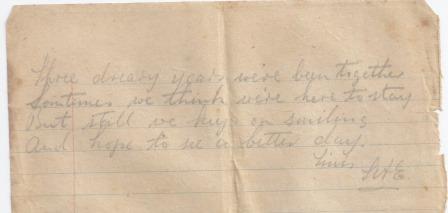 Three dreary years we've been together
Sometimes we think we're here to stay
But still we keep on smiling
And hope to see a better day.